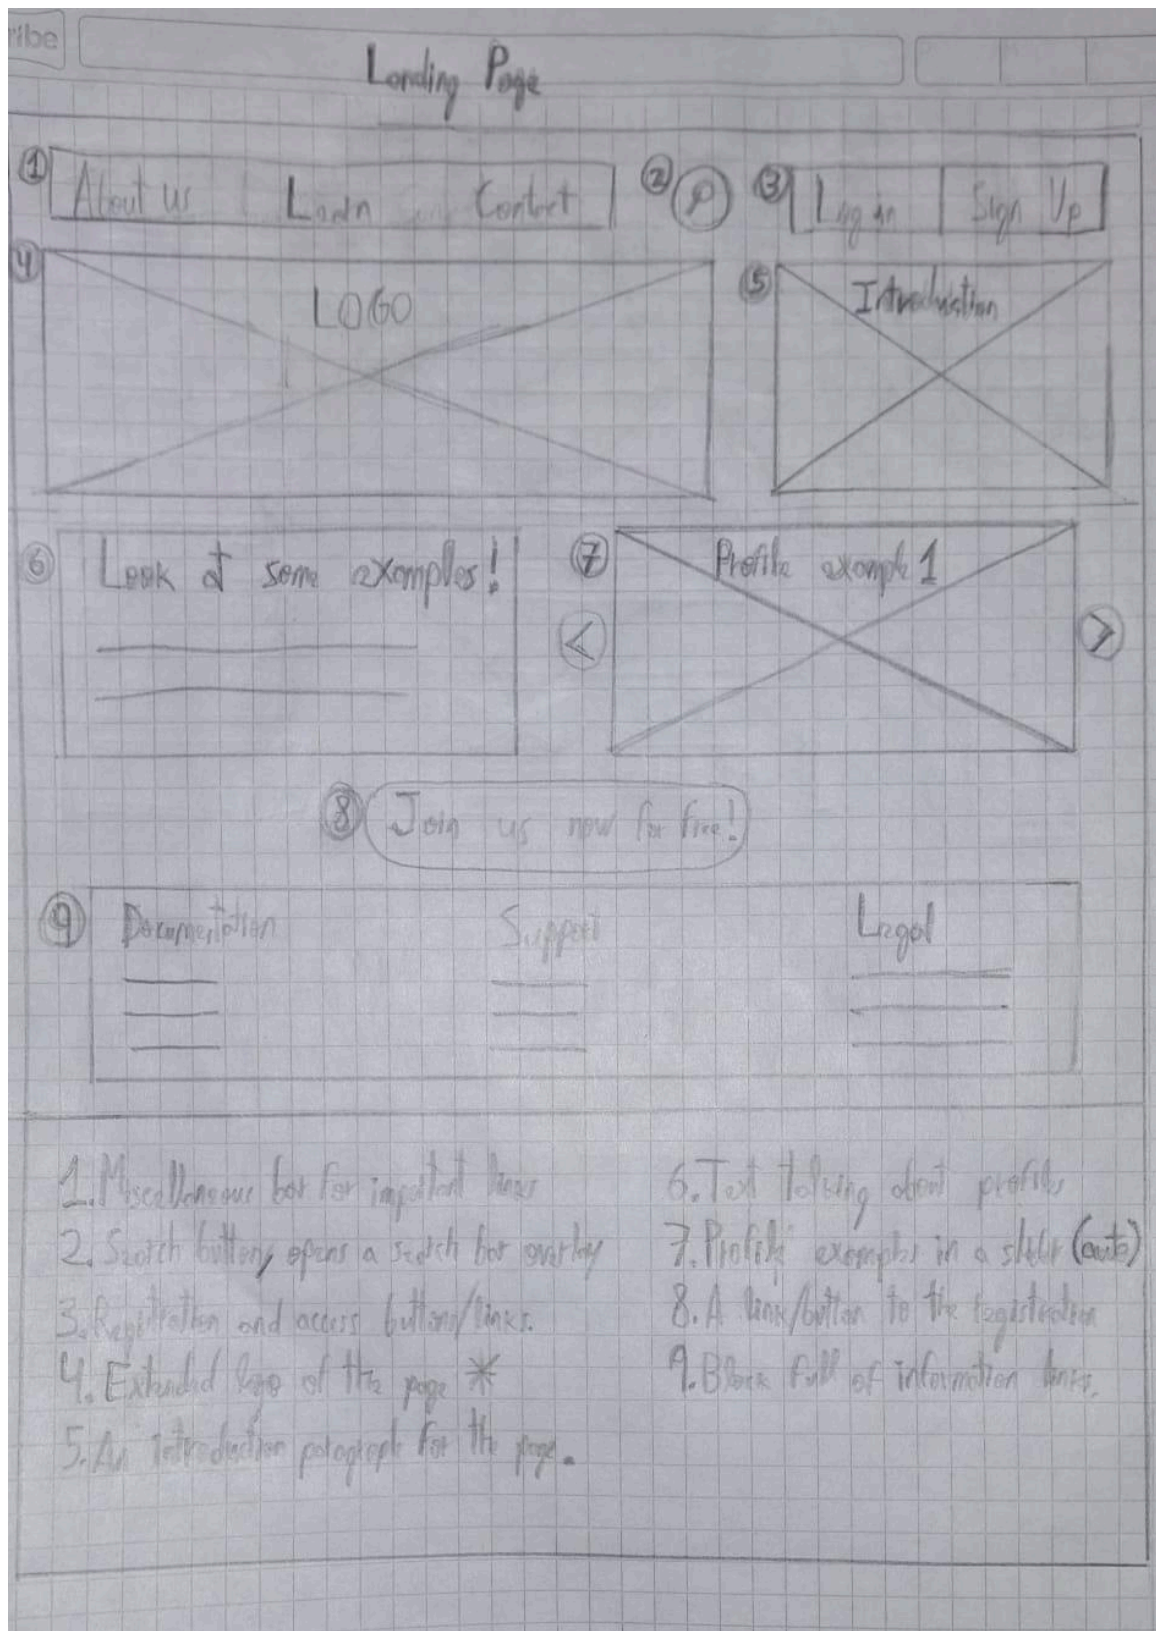 ribe
Landing Page
1 About us Learn Contact 2 3 Log in Sign Up
4 LOGO 5 Introduction
6 Look at some examples! 7 Profile example 1
< >
8 Join us now for free!
9 Documentation Support Legal
1. Miscellaneous bar for important links
2. Search button, opens a search bar overlay
3. Registration and access buttons/links.
4. Extended logo of the page *
5. An introduction paragraph for the page.
6. Text talking about profiles
7. Profile examples in a slider (auto)
8. A link/button to the registration
9. Block full of information links.